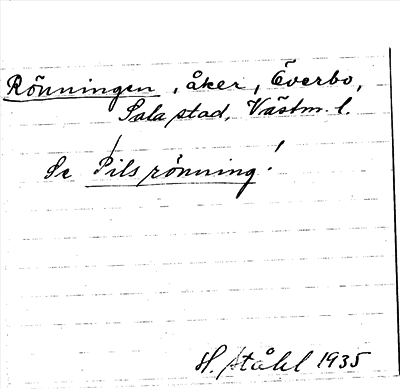 Rönningen, åker, Överbo,
Sala stad, Västm. l.
Se Pilsrönning!
H. Ståhl 1935